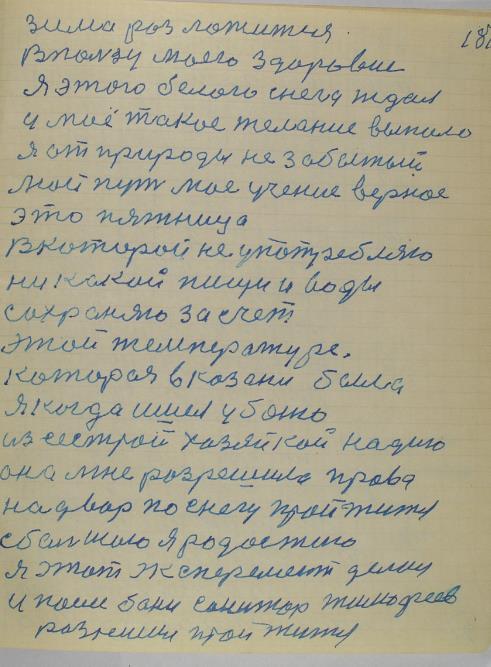 зима разложится 18
в ползу моего здоровие
я этого белого снега ждал
и моё такое желание выпало
я от природы не забытый
мой пут мое учение верное
это пятница
в которой не употребляю
ни какой пищи и воды
сохраняю за счет
этой температуре.
которая в Казани была
я когда шел
из сестрой хозяйкой надию
она мне розрешила права
на двор по снегу пройтися
с балшою я родостию
я этот эксперемент делил
и посли бани санитар
розришил пройтися